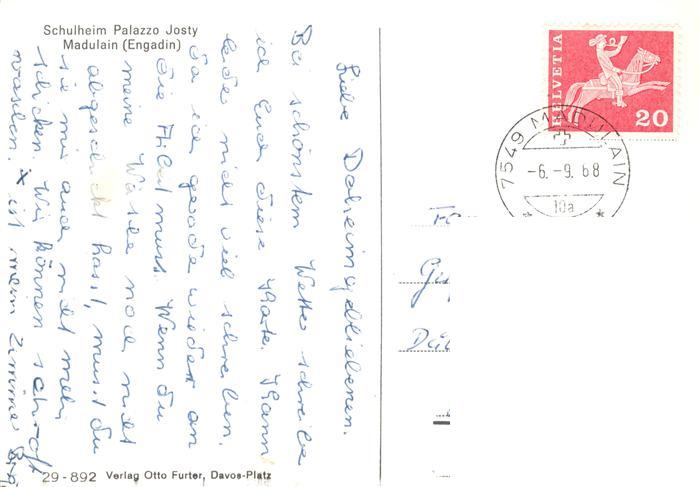 Schulheim Palazzo Josty
Madulain (Engadin)
Liebe Daheimgebliebenen.
Bei schönstem Wetter schreibe
ich Euch diese Karte. Kann
leider nicht viel schreiben,
da ich gerade wieder an
die Arbeit muss. Wenn du
meine Wäsche noch nicht
abgeschickt hast, musst du
sie mir auch nicht mehr
schicken. Wir können
waschen. x ist mein Zimmer
29-892 Verlag Otto Furter, Davos-Platz
HELVETIA
20
7549 MADULAIN
-6.-9.68
10a